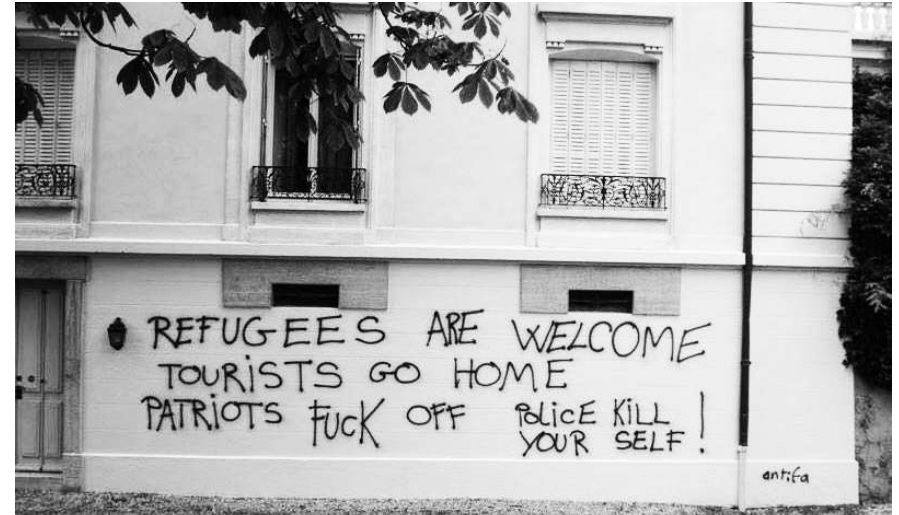 REFUGEES ARE WELCOME
TOURISTS GO HOME
PATRIOTS FUCK OFF POLICE KILL
YOUR SELF!
antifa